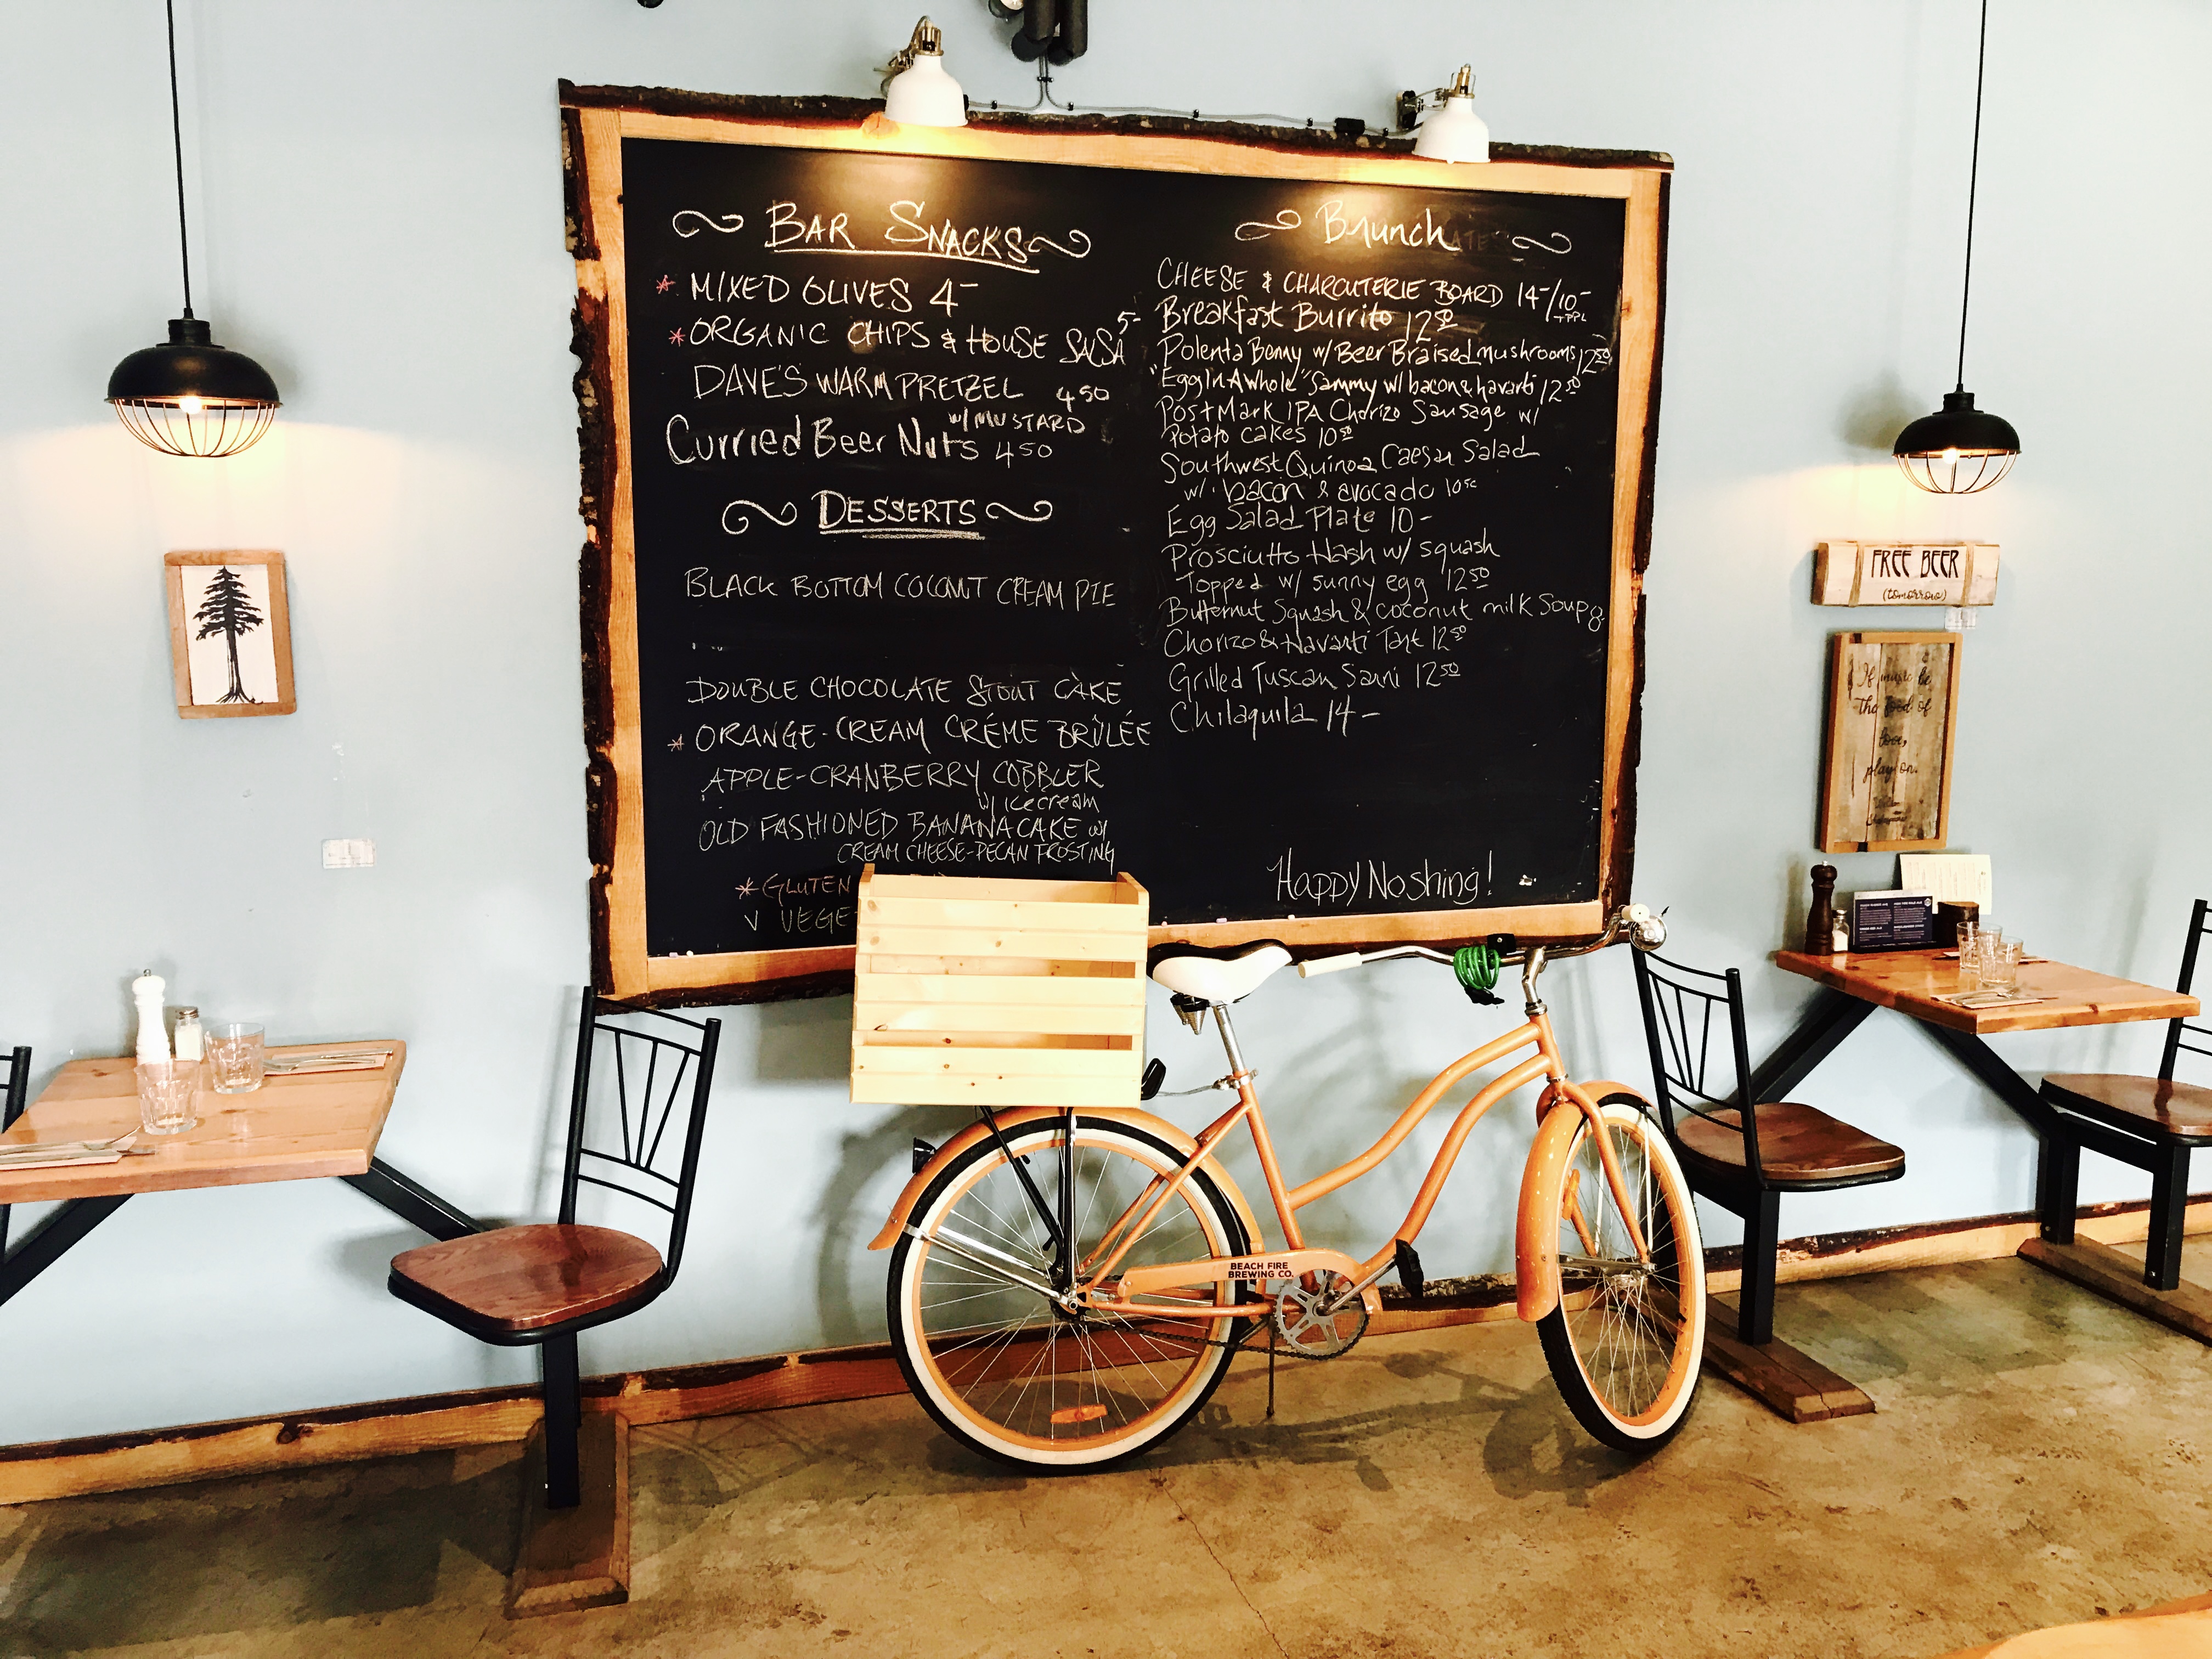 BAR SNACKS
* MIXED OLIVES 4-
* ORGANIC CHIPS & HOUSE SALSA 5-
DAVE'S WARM PRETZEL 4 50
w/ MUSTARD
Curried Beer Nuts 4 50
DESSERTS
BLACK BOTTOM COCONUT CREAM PIE
DOUBLE CHOCOLATE STOUT CAKE
* ORANGE-CREAM CRÉME BRÛLÉE
APPLE-CRANBERRY COBBLER
w/ icecream
OLD FASHIONED BANANA CAKE w/
CREAM CHEESE-PECAN FROSTING
* GLUTEN
V VEGE
Brunch
CHEESE & CHARCUTERIE BOARD 14-/10-
Breakfast Burrito 12 50
Polenta Benny w/ Beer Braised mushrooms 12 50
"Egg In A whole" Sammy w/ bacon & havarti 12 50
Postmark IPA Chorizo Sausage w/
Potato cakes 10 50
Southwest Quinoa Caesar Salad
w/ bacon & avocado 10 50
Egg Salad Plate 10-
Prosciutto Hash w/ squash
Topped w/ sunny egg 12 50
Butternut Squash & coconut milk Soup 8-
Chorizo & Havarti Tart 12 50
Grilled Tuscan Sami 12 50
Chilaquila 14-
Happy Noshing!
FREE BEER
(tomorrow)
If music be
the food of
love,
play on.
BEACH FIRE
BREWING CO.